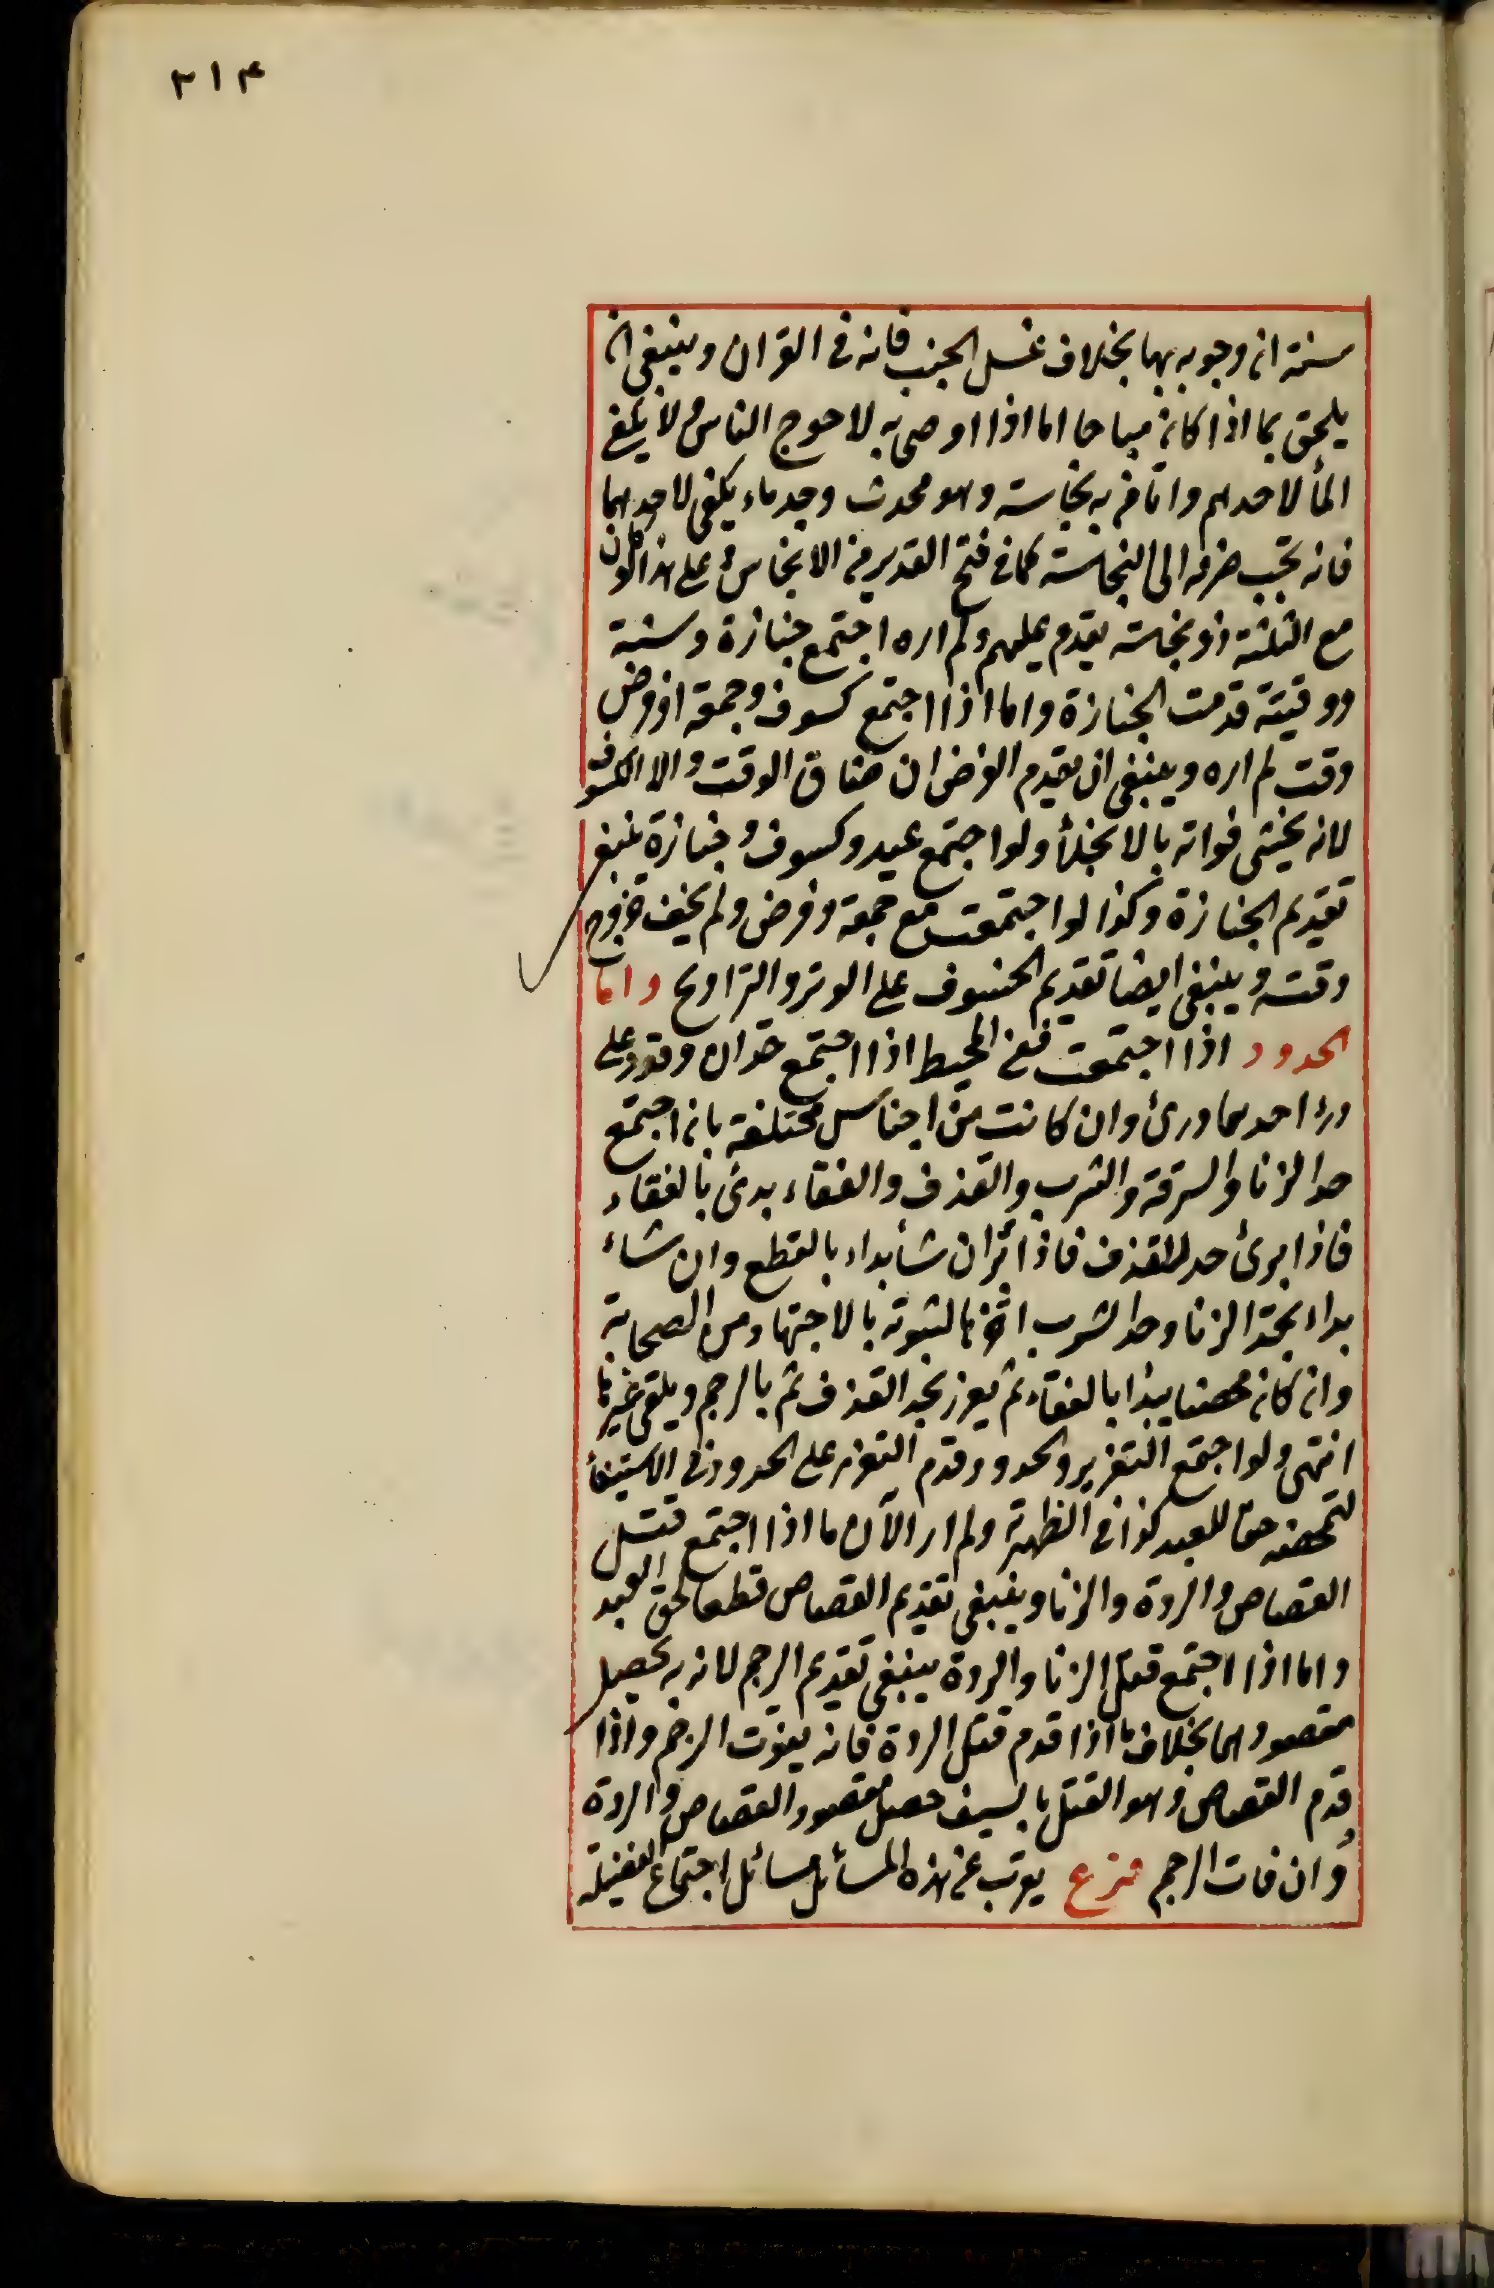 ٣١٤
سنة ان وجوبه بها بخلاف غسل الجنب فانه فى القران وينبغى ان
يلحق بما اذا كان مباحا اما اذا اوصى به لاحوج الناس ولا يكفى
الماء لاحدهم وانا من به نجاسة وهو محدث وجد ماء يكفى لاحدهما
فانه يجب صرفه الى النجاسة كما فى فتح القدير من الانجاس وعلى هذا لو كان
مع الثلثة ذو نجاسة يقدم عليهم ولم اره اجتمع جنازة وسنة
ووقتية قدمت الجنازة واما اذا اجتمع كسوف وجمعة او فرض
وقت لم اره وينبغى ان يقدم الفرض ان ضاق الوقت والا الكسوف
لانه يخشى فواته بالانجلأ ولو اجتمع عيد وكسوف وجنازة ينبغى
تقديم الجنازة وكذا لو اجتمعت مع جمعة وفرض ولم يخف خروج
وقته وينبغى ايضا تقديم الخسوف على الوتر والتراويح واما
الحدود اذا اجتمعت ففى المحيط اذا اجتمع حدان وقدر على
درء احدهما درئ وان كانت من اجناس مختلفة بان اجتمع
حد الزنا والسرقة والشرب والقذف والفقاء بدئ بالفقاء
فاذا برئ حد للقذف فاذا برئ ان شأ بداء بالقطع وان شاء
بداء بحد الزنا وحد الشرب اخرها لثبوته بالاجتهاد من الصحابة
وان كان محصنا يبدا بالفقاء ثم يعزر بحد القذف ثم بالرجم ويلغى غيرها
انتهى ولو اجتمع التعزير والحدود قدم التعزير على الحدود فى الاستيفأ
لتمحضه حقا للعبد كذا فى الظهيرة ولم ار الآن ما اذا اجتمع قتل
القصاص والردة والزنا وينبغى تقديم القصاص قطعا لحق العبد
واما اذا اجتمع قتل الزنا والردة ينبغى تقديم الرجم لانه به يحصل
مقصودهما بخلاف ما اذا قدم قتل الردة فانه يفوت الرجم واذا
قدم القصاص وهو القتل بالسيف حصل مقصود القصاص والردة
وان فات الرجم فرع يقرب من هذه المسائل مسائل اجتماع الفضيلة